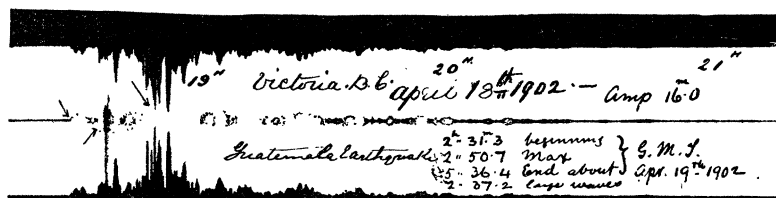 19ʰ 20ʰ 21ʰ
Victoria. B.C. April 18ᵗʰ 1902. — Amp 16.0
Guatemala Earthquake
2ʰ 31ᵐ.3 beginning
2 " 50.7 Max
5 " 36.4 End about
2 " 37.2 large waves
G.M.T.
Apr. 19ᵗʰ 1902.